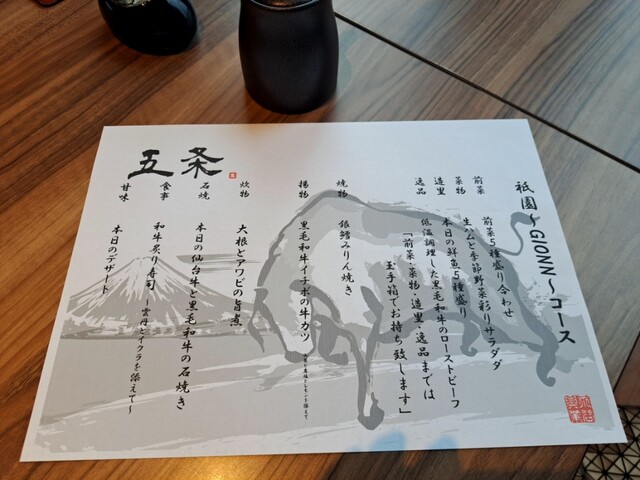 祇園～GIONN～コース
前菜 前菜5種盛り合わせ
菜物 生ハムと季節野菜彩りサラダ
造里 本日の鮮魚5種盛り
逸品 低温調理した黒毛和牛のローストビーフ
「前菜・菜物・造里・逸品までは
玉手箱でお持ち致します」
焼物 銀鱈みりん焼き
揚物 黒毛和牛イチボの牛カツ
炊物 大根とアワビの旨煮
石焼 本日の仙台牛と黒毛和牛の石焼き
食事 和牛炙り寿司 ～雲丹とイクラを添えて～
甘味 本日のデザート
五条